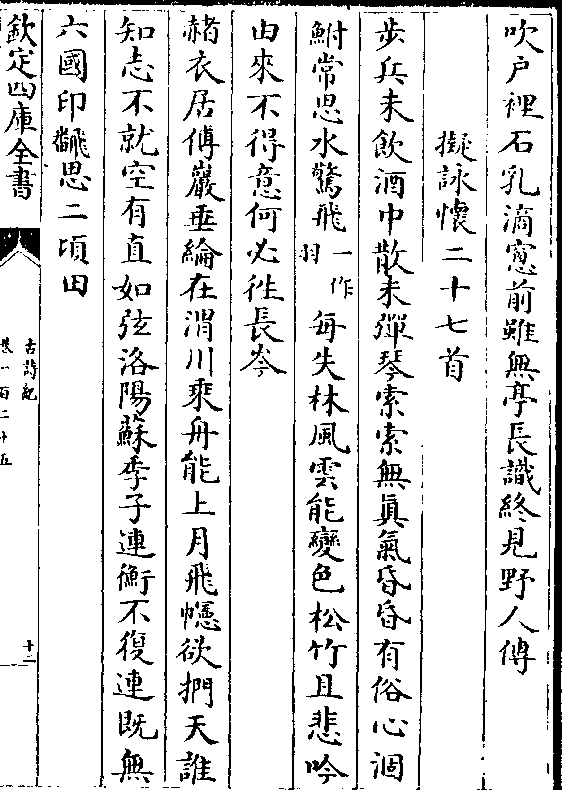 吹户裡石乳滴窻前雖無亭長識終見野人傳
擬詠懷二十七首
步兵未飲酒中散未彈琴索索無真氣昏昏有俗心涸
鮒常思水驚飛一作羽每失林風雲能變色松竹且悲吟
由來不得意何必徃長岑
赭衣居傅巖垂綸在渭川乘舟能上月飛幰欲捫天誰
知志不就空有直如弦洛陽蘇季子連衡不復連既無
六國印飜思二頃田
欽定四庫全書
古詩紀
卷一百二十五
十二